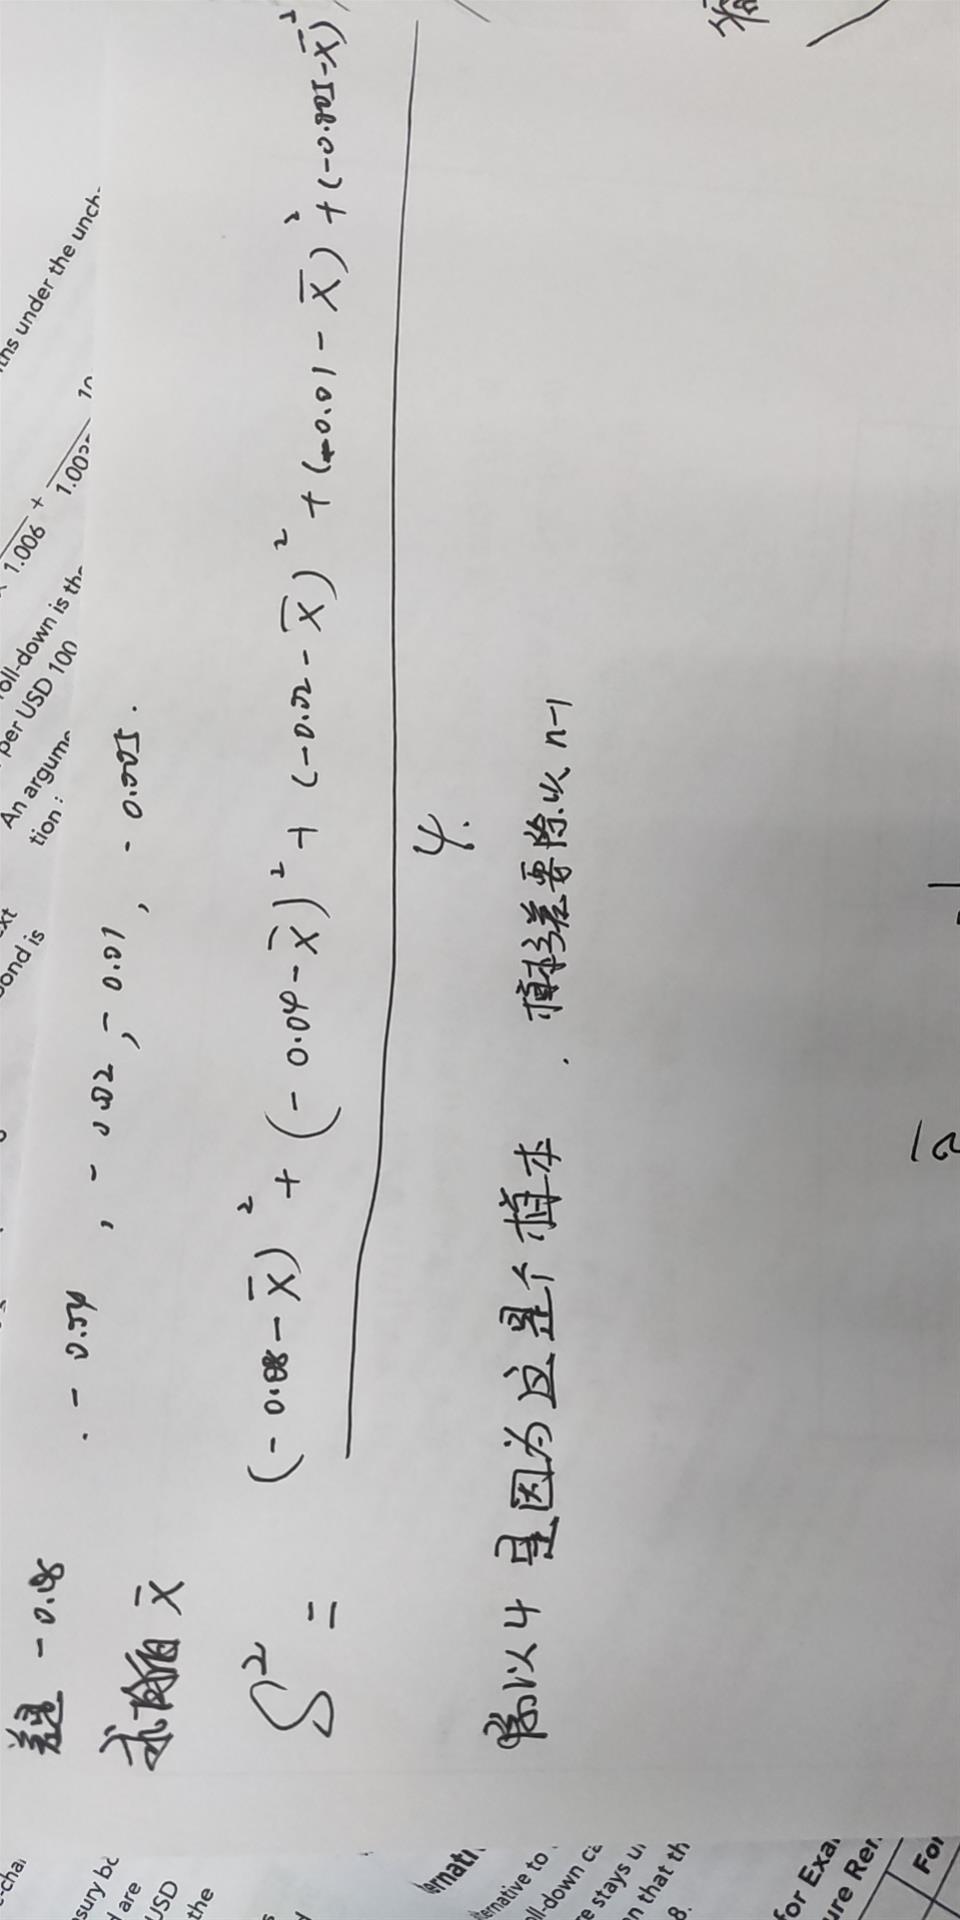 差是 -0.08 . -0.04 , -0.02, -0.01 , -0.005.
求 x̄
S² = (-0.08-x̄)² + (-0.04-x̄)² + (-0.02-x̄)² + (-0.01-x̄)² + (-0.005-x̄)²
4.
除以4 是因为这是个样本 . 样本方差要除以 n-1
ths under the unch-
1.006 +
oll-down is the
per USD 100
An argume
tion:
ond is
asury bo
d are
USD
the
ernati
ernative to
ll-down ca
e stays u
n that th
8.
for Exa
ure Re
For